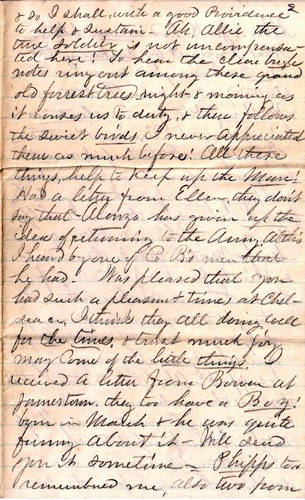 2
& so I shall, with a good Providence
to help & sustain - Ah, Allie the
true soldier is not uncompensa-
ted here! To hear the clear bugle
notes ring out among these grand
old forrest trees, night & morning as
it rouses us to duty, & then follows
the sweet birds. I never appreciated
them as much before! All these
things, help to keep up the Man!
Had a letter from Ellen, they don't
say that Alonzo has given up the
idea of returning to the Army,
I heard by one of Co B's men that
he had. Was pleased that you
had such a pleasant times at Chel-
sea. I think they all doing well
for the times, & trust much joy
may come of the little things.
received a letter from Bowen at
Jamestown. they too have a Boy!
born in March & he was quite
funny about it - Will send
you it sometime - Phipps too
remembered me, also two from